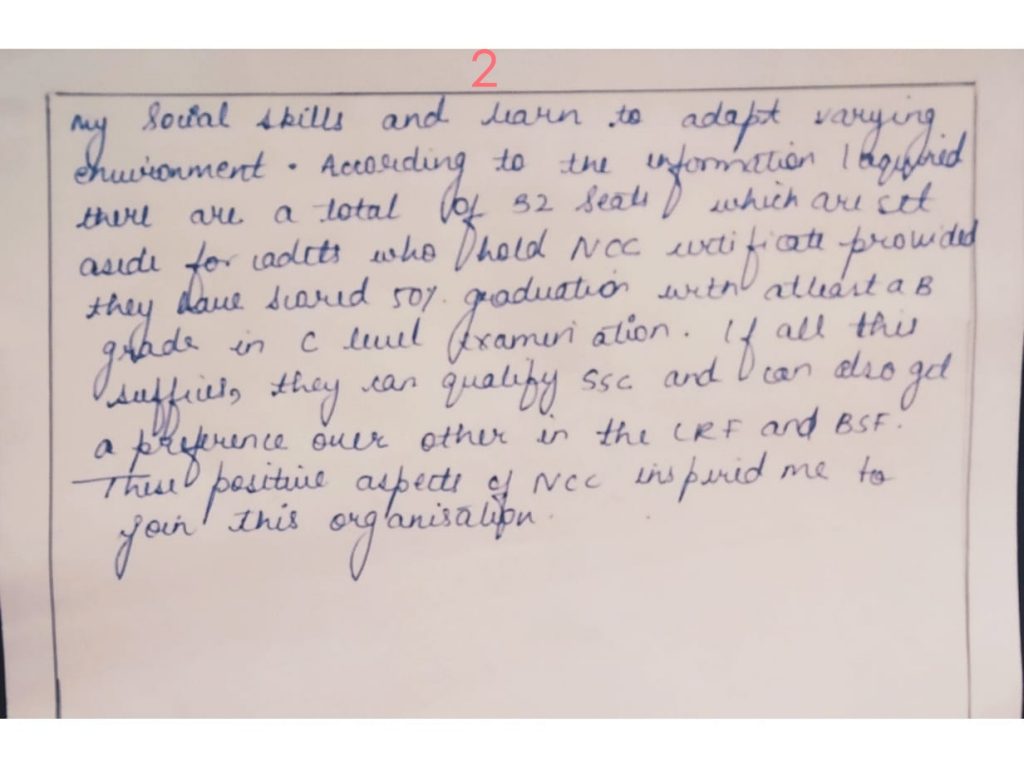 2
my social skills and learn to adapt varying
environment. According to the information I aquired
there are a total of 32 seats which are set
aside for cadets who hold NCC certificate provided
they have scored 50% graduation with atleast a B
grade in C level examination. If all this
suffices, they can qualify SSC and can also get
a preference over other in the CRF and BSF.
These positive aspects of NCC inspired me to
join this organisation.